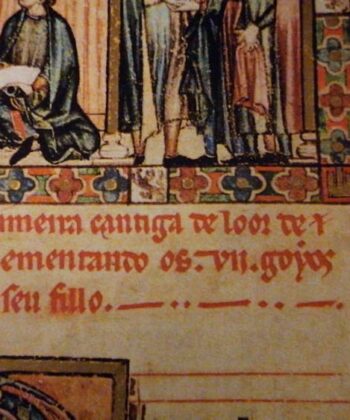 imeira cantiga de loor de
ementando os. vii. goyos
seu fillo.